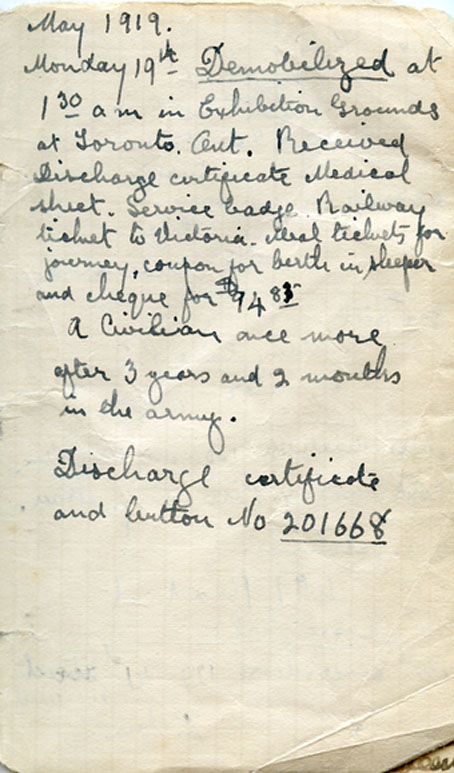 May 1919.
Monday 19th Demobilized at
1 30 a m in Exhibition Grounds
at Toronto. Ont. Received
Discharge certificate Medical
sheet. Service badge. Railway
ticket to Victoria. Meal tickets for
journey, coupon for berth in sleeper
and cheque for
A Civilian once more
after 3 years and 2 months
in the army.
Discharge certificate
and button No 201668